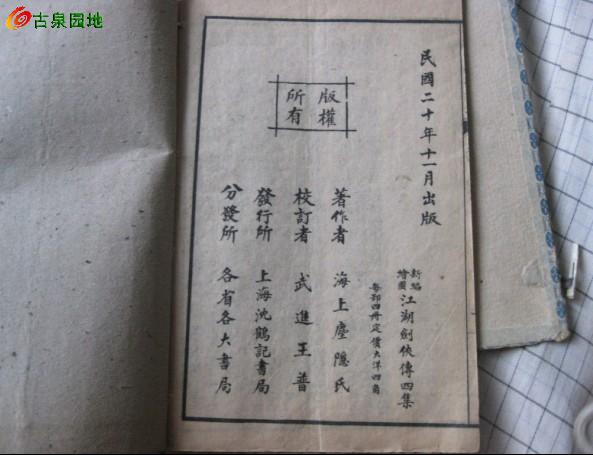 古泉园地
民國二十年十一月出版
版權
所有
新編
繪圖
江湖劍俠傳四集
每部四冊定價大洋四角
著作者 海上塵隱氏
校訂者 武進王普
發行所 上海沈鶴記書局
分發所 各省各大書局